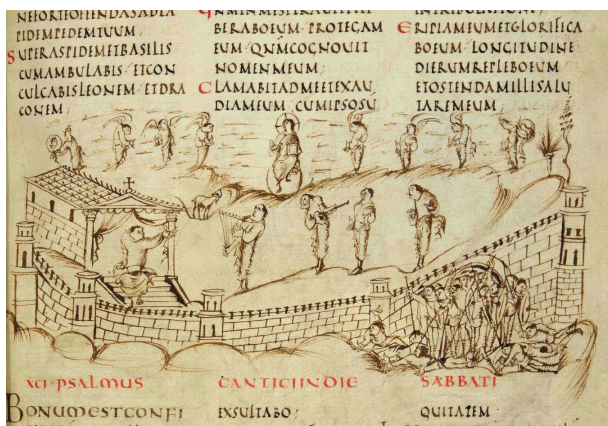 NEFORTEOFFENDASADLA
PIDEMPEDEMTUUM;
SUPERASPIDEMETBASILIS
CUMAMBULABIS· ETCON
CULCABISLEONEM ETDRA
CONEM;
BERABOEUM· PROTEGAM
EUM· QNMCOGNOUIT
NOMENMEUM;
CLAMABITADMEETEXAU
DIAMEUM CUMIPSOSU
ERIPIAMEUMETGLORIFICA
BOEUM· LONGITUDINE
DIERUMREPLEBOEUM
ETOSTENDAMILLISALU
TAREMEUM;
XCI·PSALMUS CANTICIINDIE SABBATI
BONUMESTCONFI
EXSULTABO;
QUITATEM·